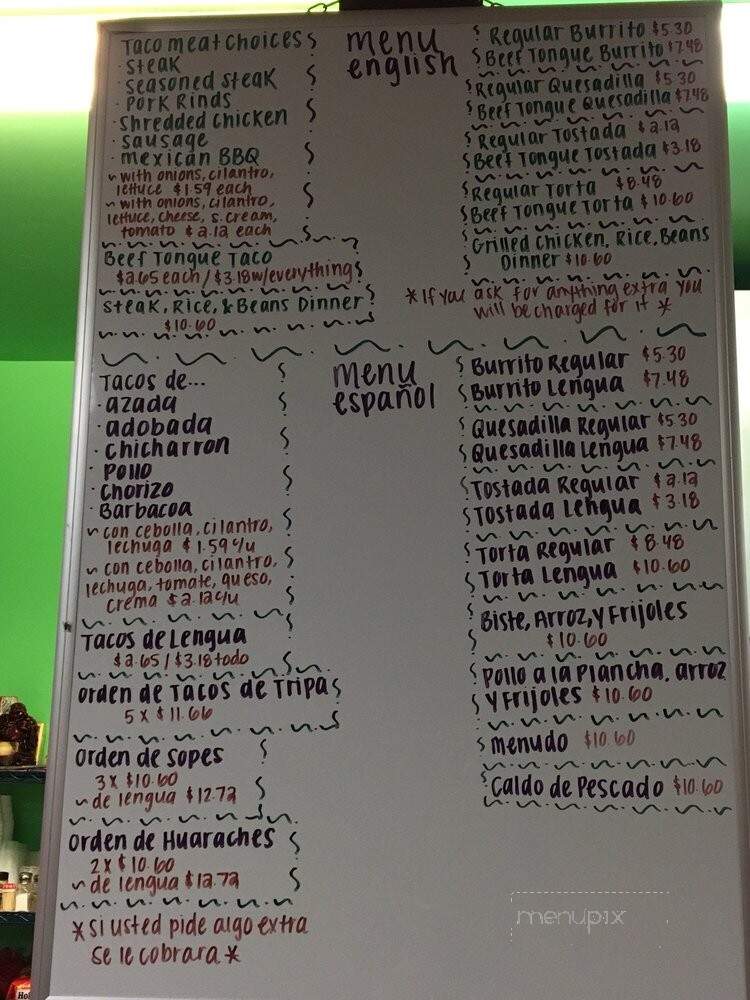 Taco meat choices
· steak
· seasoned steak
· pork rinds
· shredded chicken
· sausage
· mexican BBQ
~ with onions, cilantro,
lettuce $1.59 each
~ with onions, cilantro,
lettuce, cheese, s. cream,
tomato $2.12 each
Beef Tongue Taco
$2.65 each / $3.18 w/everything
steak, Rice, & Beans Dinner
$10.60
menu
english
Regular Burrito $5.30
Beef Tongue Burrito $7.48
Regular Quesadilla $5.30
Beef Tongue Quesadilla $7.48
Regular Tostada $2.12
Beef Tongue Tostada $3.18
Regular Torta $8.48
Beef Tongue Torta $10.60
Grilled Chicken, Rice, Beans
Dinner $10.60
*If you ask for anything extra you
will be charged for it *
Tacos de...
· azada
· adobada
· chicharron
· Pollo
· Chorizo
· Barbacoa
~ con cebolla, cilantro,
lechuga $1.59 c/u
~ con cebolla, cilantro,
lechuga, tomate, queso,
crema $2.12 c/u
Tacos de Lengua
$2.65 / $3.18 todo
orden de Tacos de Tripa
5 x $11.66
Orden de Sopes
3x $10.60
~ de lengua $12.72
Orden de Huaraches
2x $10.60
~ de lengua $12.72
*si usted pide algo extra
se le cobrara *
menu
español
Burrito Regular $5.30
Burrito Lengua $7.48
Quesadilla Regular $5.30
Quesadilla Lengua $7.48
Tostada Regular $2.12
Tostada Lengua $3.18
Torta Regular $8.48
Torta Lengua $10.60
Biste, Arroz, y Frijoles
$10.60
pollo a la Plancha, arroz
y Frijoles $10.60
menudo $10.60
Caldo de Pescado $10.60
menupix